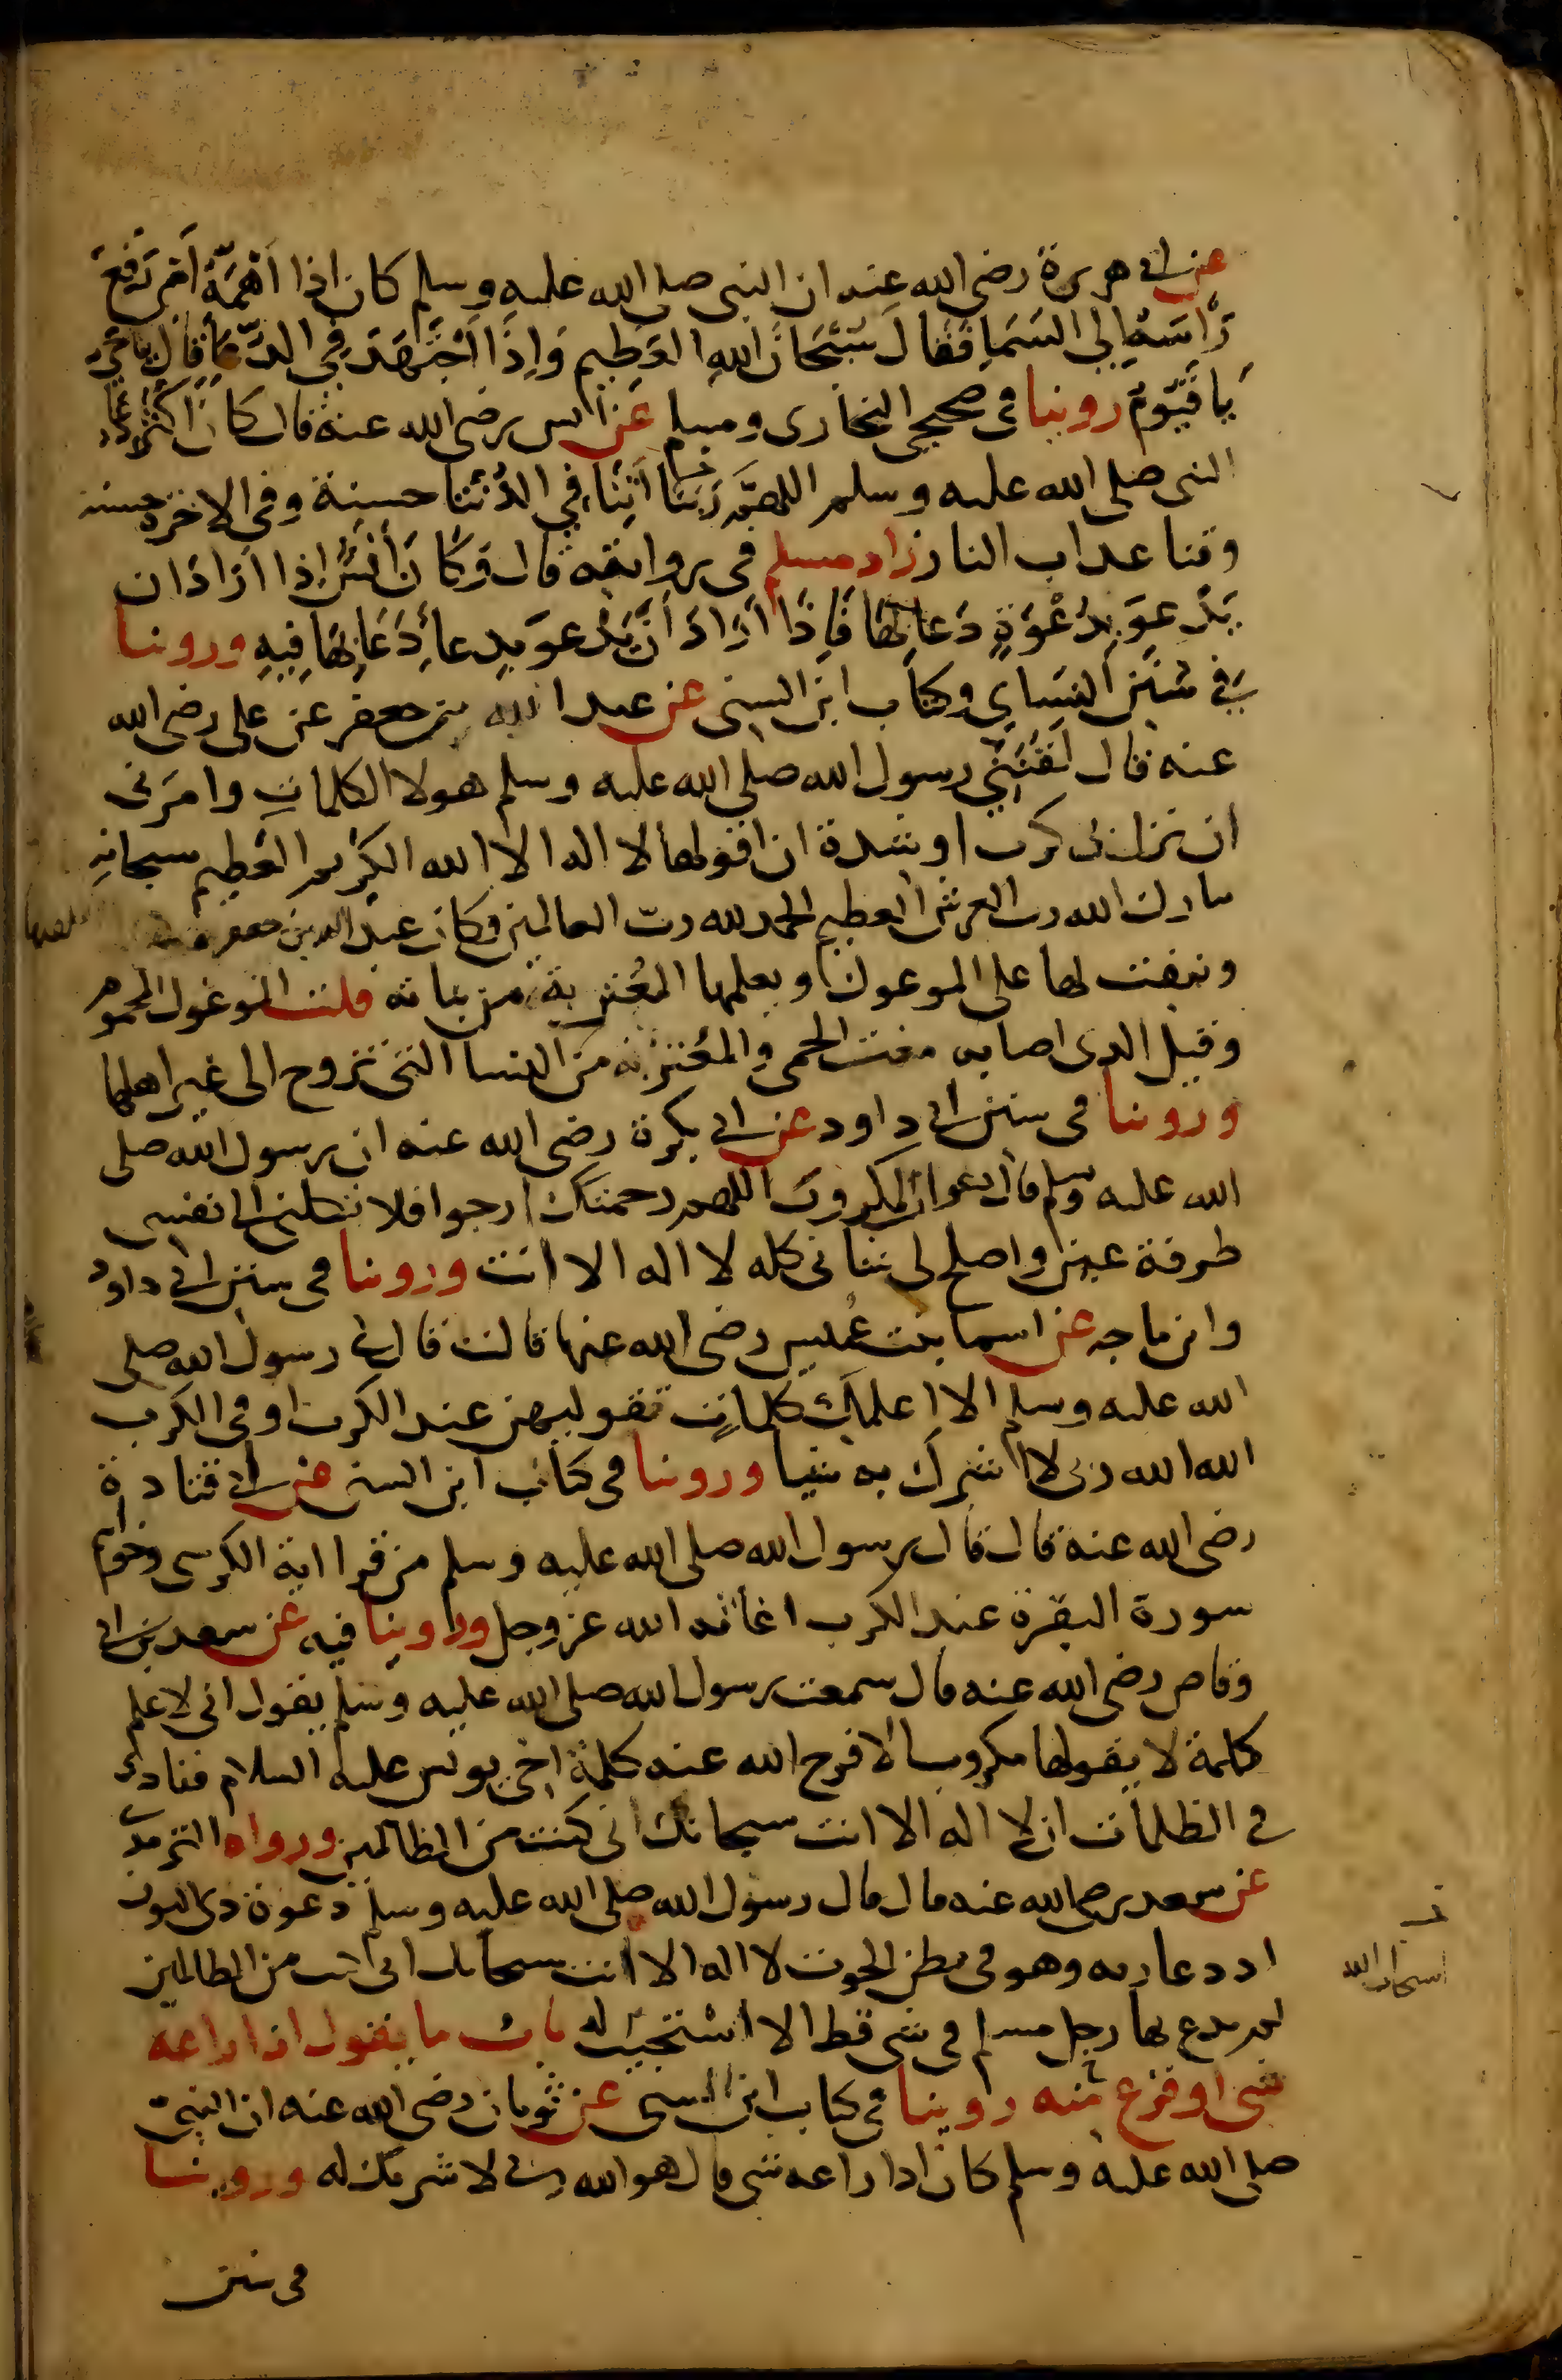 عن ابي هريرة رضي الله عنه ان النبي صلى الله عليه وسلم كان اذا اَهَمَّهُ اَمرٌ رَفَعَ
رَأسَهُ اِلي السَّمَاِ فَقَالَ سُبْحَانَ اللهِ العَظِيم وَاِذَا اَجْتَهَدَ فِي الدُّعَاءِ قَالَ يَا حَيُّ
يَا قَيُّومُ روينا في صحيحي البخاري ومسلم عن انس رضي الله عنه قال كَانَ اكْثَرُ دُعَاءِ
النبي صلى الله عليه وسلم اللهمَّ رَبَّنَا اَتِنَا فِي الدُّنْيَا حسنة وفي الاخرة حسنة
وقنا عذاب النار زاد مسلم في روايته قال وَكَانَ أَنَسٌ اِذا ارَادَ ان
يَدْعوَ بِدَعْوَةٍ دَعَا بِهَا فَاِذَا اَرَادَ اَنْ يَدْعوَ بِدعاءٍ دَعَا بِهَا فِيهِ وروينا
في سُنَنِ النسَاي وكتاب ابن السني عن عبد الله بن جعفر عن علي رضي الله
عنه قال لَقَّنَنِي رسول الله صلى الله عليه وسلم هولا الكلماتِ وامرَني
ان نزل بي كرب او شدة ان اقولها لا اله الا الله الكريم العظيم سبحانه
تبارك الله رب العرش العظيم الحمد لله ربّ العالمين وكان عبد الله بن جعفر يلقنها
وينفث بها على الموعوك ويعلمها المُغْتَرِبة من بناته قلت الموعوك المحموم
وقيل الذي اصابه مغث الحمى والمُغْتربة من النسا التي تزوج الى غير اهلها
وروينا في سنن ابي داود عن ابي بكرة رضي الله عنه ان رسول الله صلى
الله عليه وسلم قال دعوات المكروب اللهم رحمتك ارجوا فلا تكلني الى نفسي
طرفة عين واصلح لي شاني كله لا اله الا انت وروينا في سنن ابي داود
وابن ماجه عن اسما بنت عُميس رضي الله عنها قالت قال لي رسول الله صلى
الله عليه وسلم الا اعلمكِ كلماتٍ تقوليهن عند الكرب او في الكرب
الله الله ربي لا اشرك به شيا وروينا في كتاب ابن السني عن ابي قتادة
رضي الله عنه قال قال رسول الله صلى الله عليه وسلم من قرا اية الكرسي وخواتم
سورة البقرة عند الكرب اغاثه الله عز وجل وروينا فيه عن سعد بن ابي
وقاص رضي الله عنه قال سمعت رسول الله صلى الله عليه وسلم يقول اني لا علم
كلمة لا يقولها مكروب الا فرج الله عنه كلمة اخي يونس عليه السلام فنادى
في الظلمات ان لا اله الا انت سبحانك اني كنت من الظالمين ورواه الترمذي
عن سعد رضي الله عنه قال قال رسول الله صلى الله عليه وسلم دعوة ذي النون
اذ دعا ربه وهو في بطن الحوت لا اله الا انت سبحانك اني كنت من الظالمين
لم يدع بها رجل مسلم في شي قط الا استجيب له باب ما يقول اذا راعه
شي او فزع منه روينا في كتاب ابن السني عن ثوبان رضي الله عنه ان النبيّ
صلى الله عليه وسلم كان اذا راعه شي قال هو الله ربي لا شريك له وروينا
في سنن